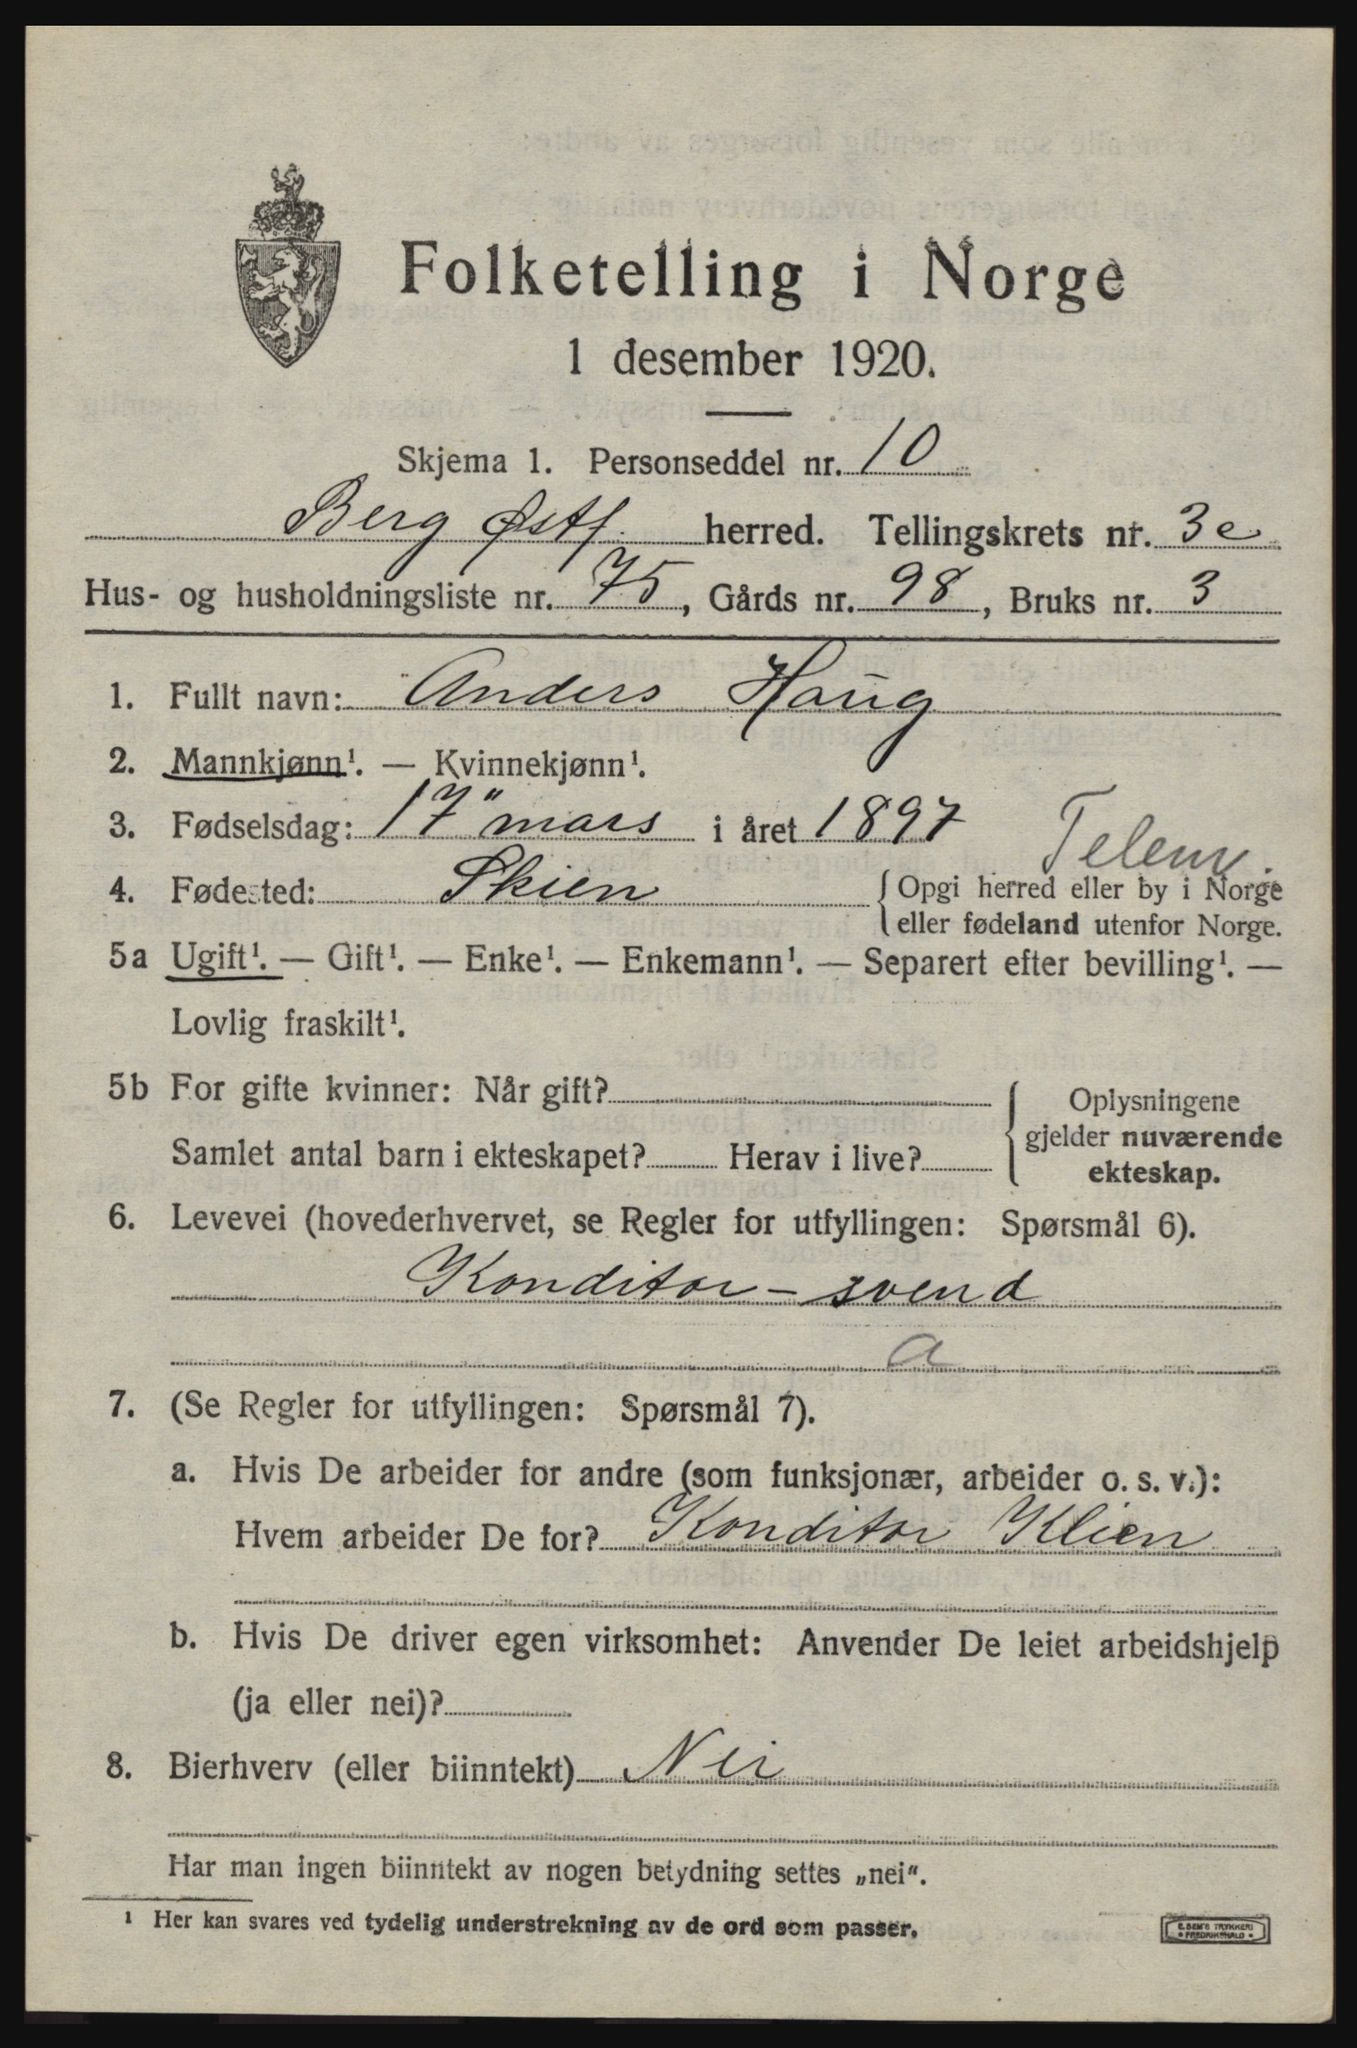 Folketelling i Norge
1 desember 1920.
Skjema 1. Personseddel nr. 10
Berg Østf. herred. Tellingskrets nr. 3e
Hus- og husholdningsliste nr. 75, Gårds nr. 98, Bruks nr. 3
1. Fullt navn: Anders Haug
2. Mannkjønn¹. — Kvinnekjønn¹.
3. Fødselsdag: 17" mars i året 1897
Telem.
4. Fødested: Skien { Opgi herred eller by i Norge
eller fødeland utenfor Norge.
5a Ugift¹. — Gift¹. — Enke¹. — Enkemann¹. — Separert efter bevilling¹. —
Lovlig fraskilt¹.
5b For gifte kvinner: Når gift?
Samlet antal barn i ekteskapet? Herav i live?
{ Oplysningene
gjelder nuværende
ekteskap.
6. Levevei (hovederhvervet, se Regler for utfyllingen: Spørsmål 6).
Konditor - svend
a
7. (Se Regler for utfyllingen: Spørsmål 7).
a. Hvis De arbeider for andre (som funksjonær, arbeider o. s. v.):
Hvem arbeider De for? Konditor Klien
b. Hvis De driver egen virksomhet: Anvender De leiet arbeidshjelp
(ja eller nei)?
8. Bierhverv (eller biinntekt) Nei
Har man ingen biinntekt av nogen betydning settes „nei“.
¹ Her kan svares ved tydelig understrekning av de ord som passer.
E. SEM'S TRYKKERI
• FREDRIKSHALD •